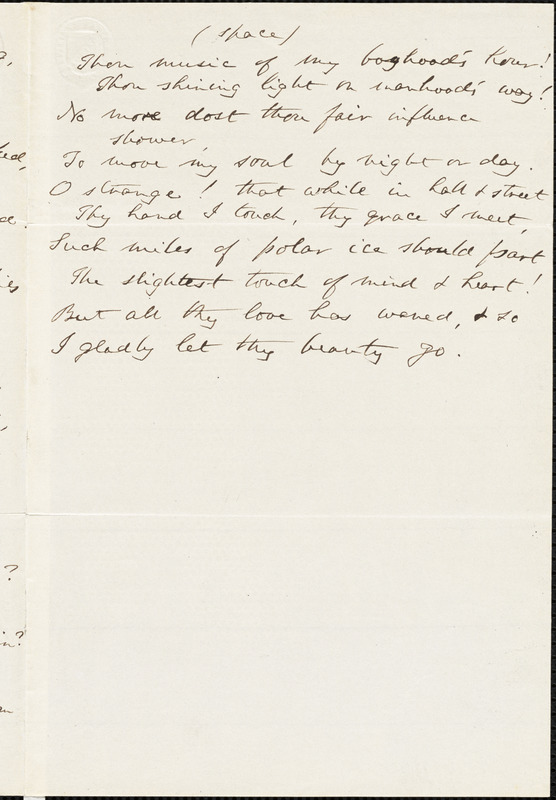 (space)
Thou music of my boyhood's hour!
Thou shining light on manhood's way!
No more dost thou fair influence
shower
To move my soul by night or day.
O strange! that while in hall & street
Thy hand I touch, thy grace I meet,
Such miles of polar ice should part
The slightest touch of mind & heart!
But all thy love has waned, & so
I gladly let thy beauty go.